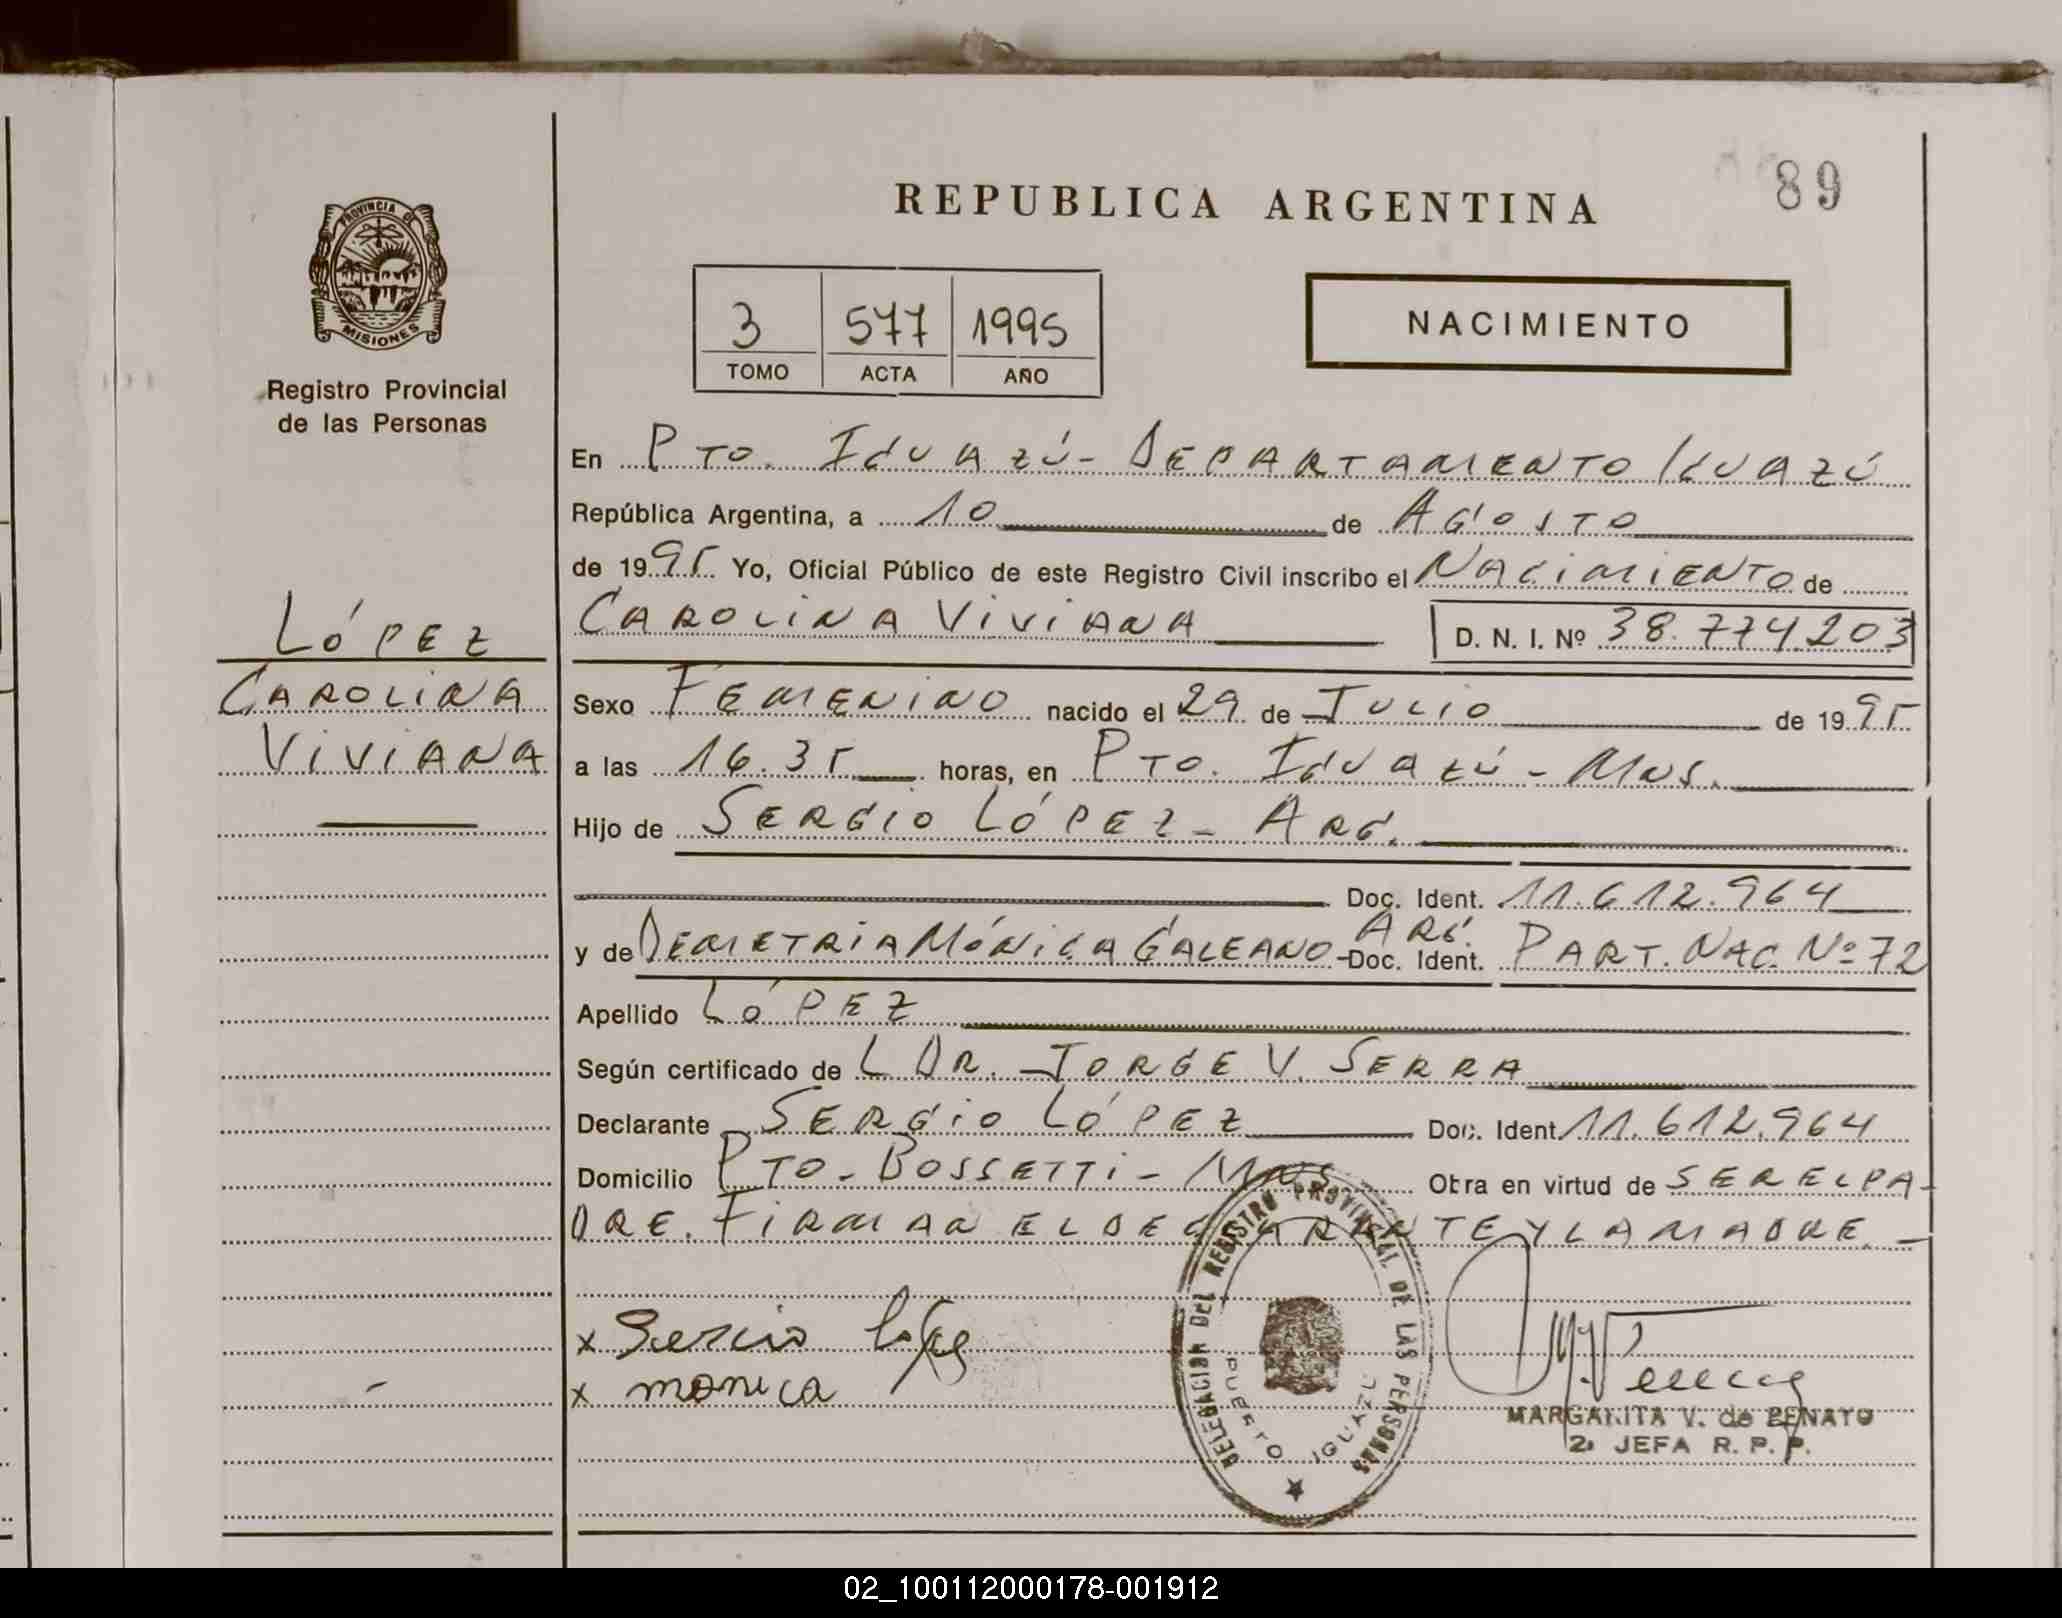 REPUBLICA ARGENTINA
89
PROVINCIA DE
MISIONES
Registro Provincial
de las Personas
3 577 1995
TOMO ACTA AÑO
NACIMIENTO
En PTO. IGUAZÚ - DEPARTAMENTO IGUAZÚ
República Argentina, a 10 de AGOSTO
de 1995 Yo, Oficial Público de este Registro Civil inscribo el NACIMIENTO de
CAROLINA VIVIANA D. N. I. Nº 38.774.203
LÓPEZ
CAROLINA
VIVIANA
Sexo FEMENINO nacido el 29 de JULIO de 1995
a las 16.35 horas, en PTO. IGUAZÚ - MNS.
Hijo de SERGIO LÓPEZ - ARG.
Doc. Ident. 11.612.964
y de DEMETRIA MÓNICA GALEANO - ARG. Doc. Ident. PART. NAC. Nº 72
Apellido LÓPEZ
Según certificado de L DR. JORGE V. SERRA
Declarante SERGIO LÓPEZ Doc. Ident 11.612.964
Domicilio PTO - BOSSETTI - MNS. Obra en virtud de SER EL PA-
DRE. FIRMAN EL DECLARANTE Y LA MADRE. -
x Sergio López
x monica
DELEGACION DEL REGISTRO PROVINCIAL DE LAS PERSONAS
PUERTO IGUAZU
MARGARITA V. de BENATO
2ª JEFA R. P. P.
02_100112000178-001912